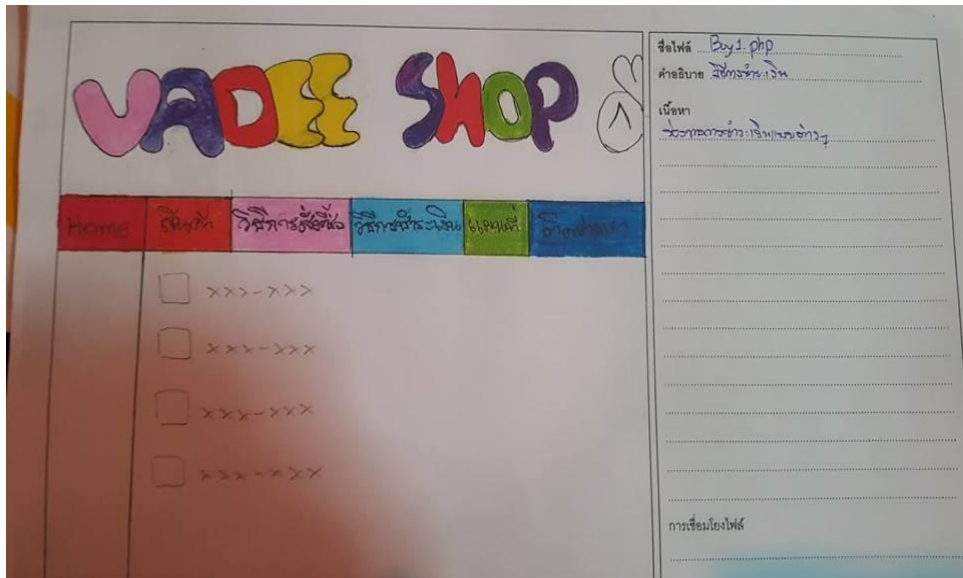 VADEE SHOP
Home สินค้า วิธีการสั่งซื้อ วิธีการชำระเงิน แผนที่
xxx-xxx
xxx-xxx
xxx-xxx
xxx-xxx
ชื่อไฟล์ Buy1.php
คำอธิบาย วิธีการชำระเงิน
เนื้อหา
ช่องทางการชำระเงินแบบต่างๆ
การเชื่อมโยงไฟล์